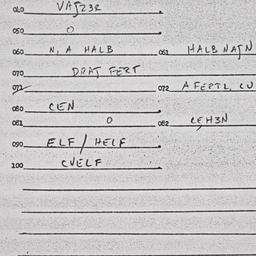 040 VAʃ23R
050 O
060 N, A HALB 061 HALB NAʃN
070 DRAT FERT
071 072 AFERTL, CU
080 CEN
081 O 082 CEH3N
090 ELF / HELF
100 CVELF